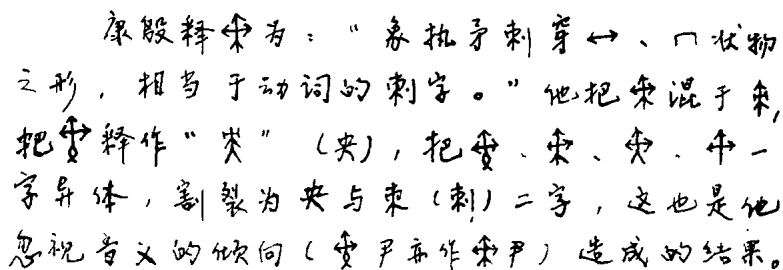 康殷释为："象执矛刺穿↔、冂状物
之形，相当于动词的刺字。"他把混于朿，
把释作"㶳"（央），把、、、一
字异体，割裂为央与朿（刺）二字，这也是他
忽视音义的倾向（尹亦作尹）造成的结果。